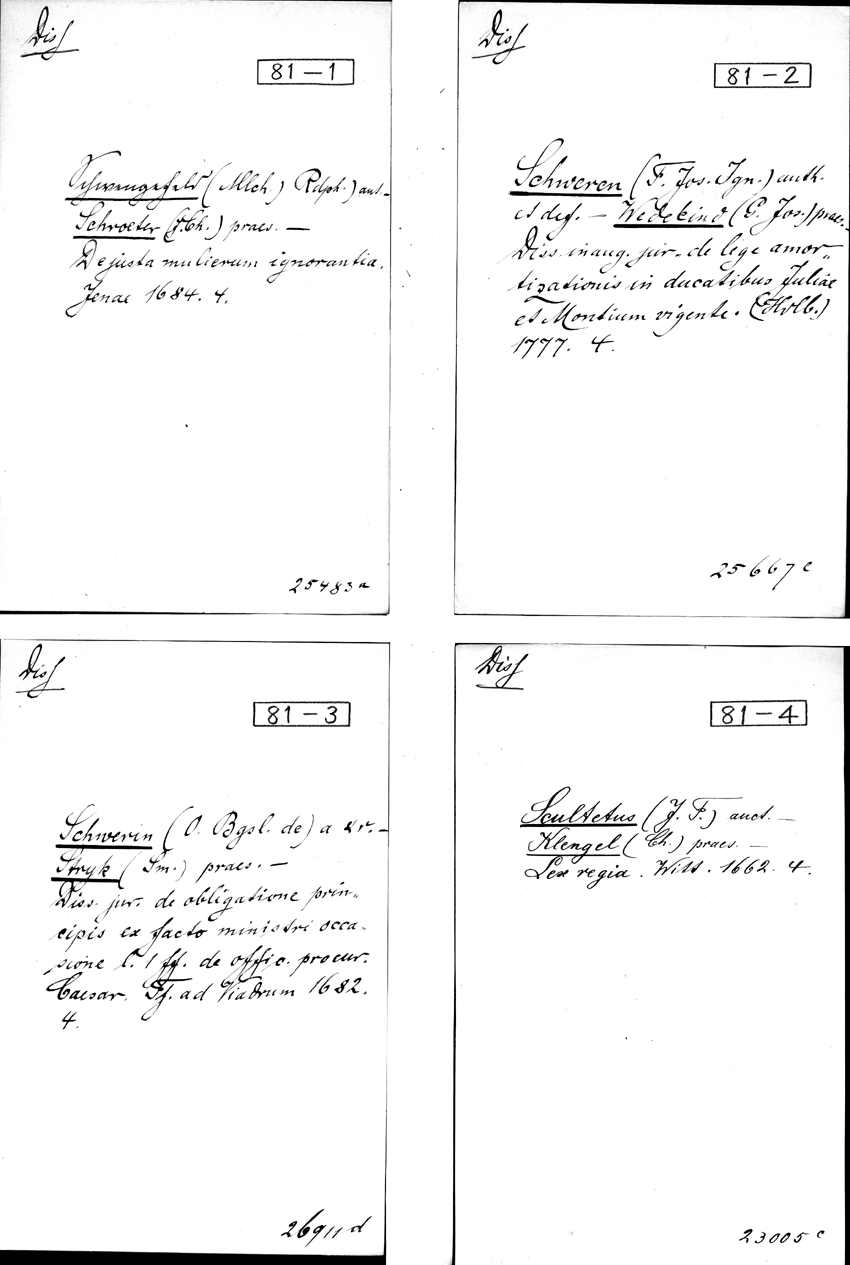 Diss
81-1
Schwengefeld (Mlch.) Rdph.) aut.-
Schroeter (J. Ch.) praes. —
De justa mulierum ignorantia.
Jenae 1684. 4.
25483a
Diss
81-2
Schweren (F. Jos. Ign.) auth.
et def. — Wedekind (G. Jos.) praes.—
Diss. inaug. jur. de lege amor„
tizationis in ducatibus Juliae
et Montium vigente. (Hdlb.)
1777. 4.
25667c
Diss
81-3
Schwerin (O. Bgsl. de) a et r.—
Stryk (Sm.) praes. —
Diss. jur. de obligatione prin„
cipis ex facto ministri occa-
sione l. 1 ff. de offic. procur.
Caesar. Ff. ad Viadrum 1682.
4.
26911d
Diss
81-4
Scultetus (J. F.) auct. —
Klengel (Ch.) praes. —
Lex regia. Witt. 1662. 4.
23005c